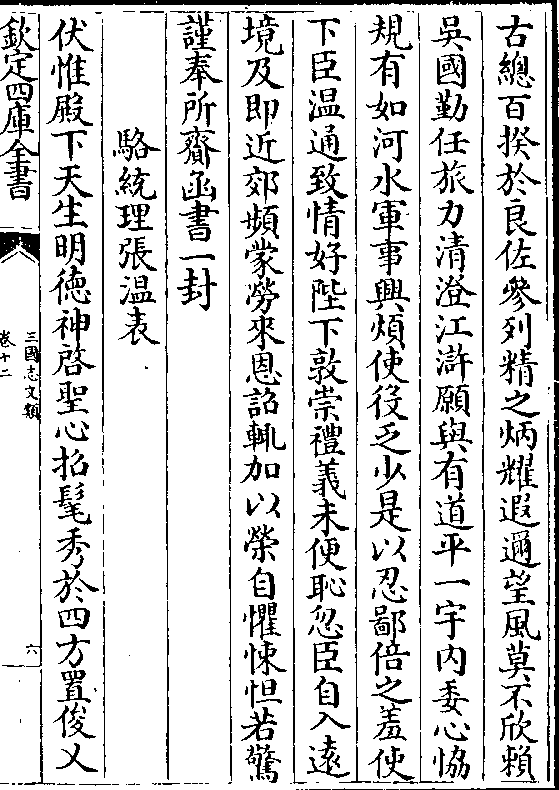 古總百揆於良佐參列精之炳耀遐邇望風莫不欣賴
吳國勤任旅力清澄江滸願與有道平一宇內委心恊
規有如河水軍事興煩使役乏少是以忍鄙倍之羞使
下臣温通致情好陛下敦崇禮義未便恥忽臣自入遠
境及即近郊頻蒙勞來恩詔輒加以榮自懼悚怛若驚
謹奉所齎函書一封
駱統理張温表
伏惟殿下天生明徳神啓聖心招髦秀於四方置俊乂
欽定四庫全書
三國志文類
卷十二
六